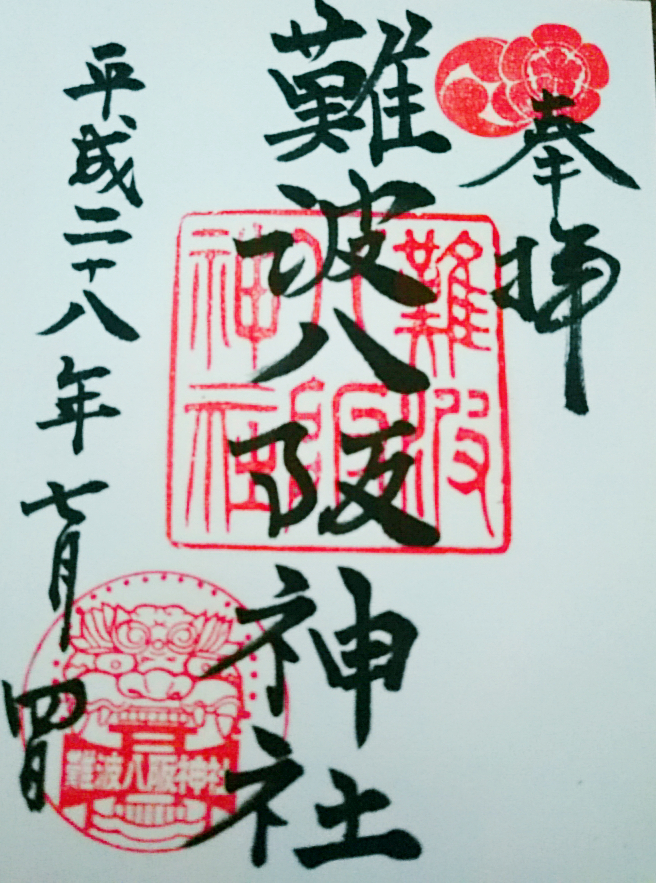 奉拝
難波八阪神社
平成二十八年七月四日
難波
八阪
神社
難波八阪神社